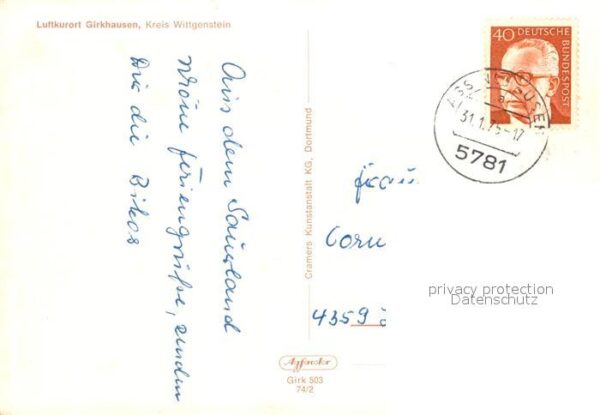 Luftkurort Girkhausen, Kreis Wittgenstein
Aus dem Sauerland
Feriengrüße, senden
Die die Bikos
Cramers Kunstanstalt KG, Dortmund
40
DEUTSCHE
BUNDESPOST
31.1.75-17
a
5781
Frau
Corn
4359
privacy protection
Datenschutz
Girk 503
74/2